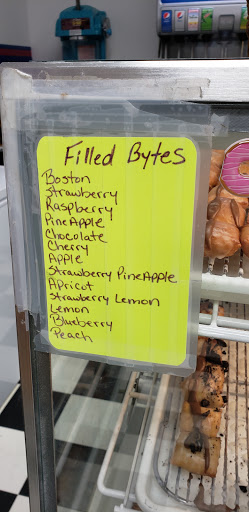 Filled Bytes
Boston
Strawberry
Raspberry
PineApple
Chocolate
Cherry
Apple
Strawberry PineApple
Apricot
Strawberry Lemon
Lemon
Blueberry
Peach